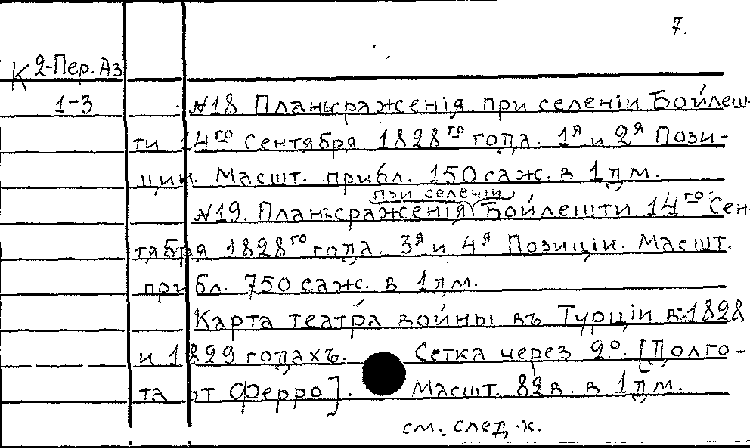 7.
К 2-Пер. Аз
1-3
№18 Планъ сраженія при селеніи Бойлеш-
ти 14го Сентября 1828го года. 1я и 2я Пози-
ции. Масшт. прибл. 150 саж. в 1 дм.
при селеніи
№19. Планъ сраженія Бойлешти 14го Сен-
тября 1828го года. 3я и 4я Позиціи. Масшт.
прибл. 750 саж. в 1 дм.
Карта театра войны въ Турціи в 1828
и 1829 годахъ. Сетка через 2°. [Долго-
та от Ферро]. Масшт. 82 в. в 1 дм.
см. след. к.